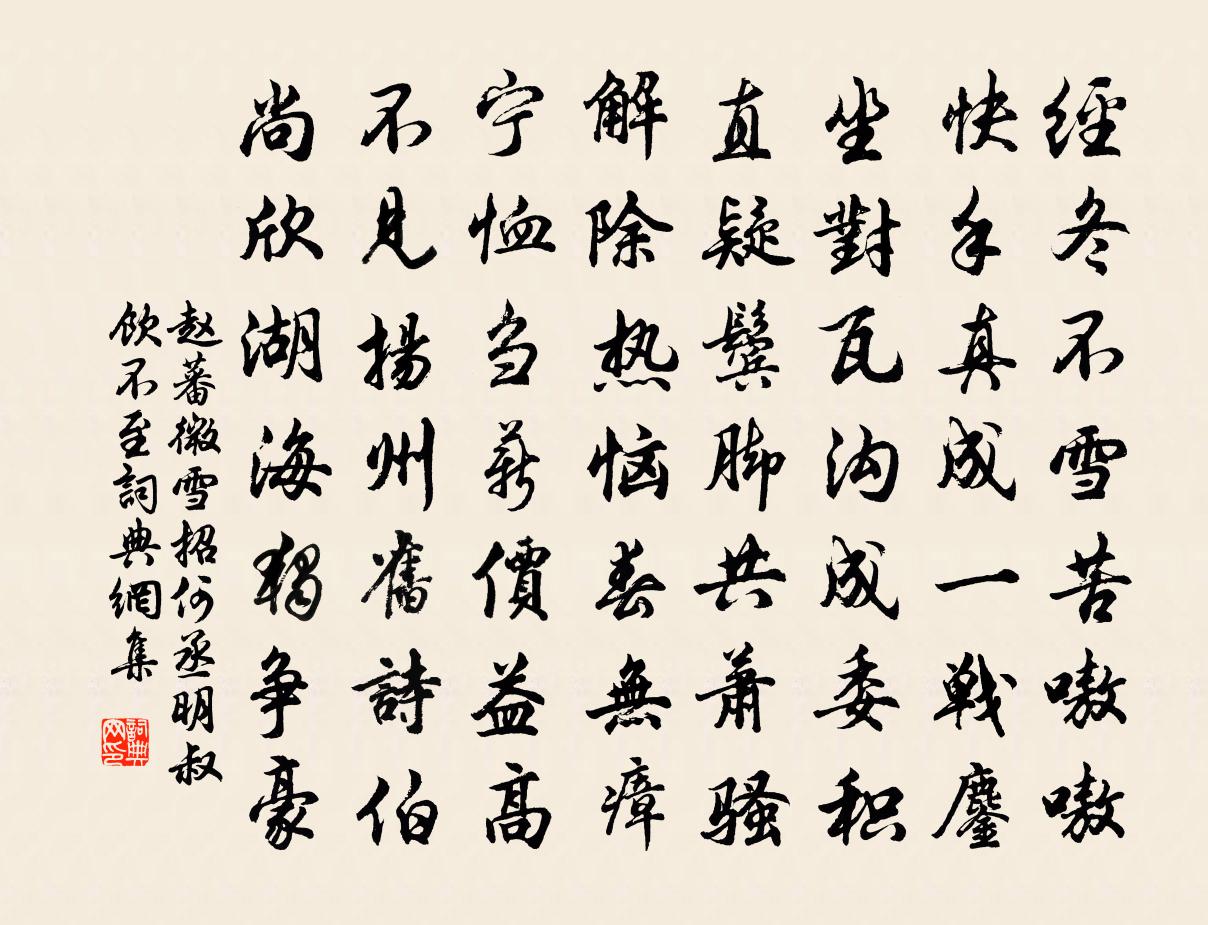 經冬不雪苦嗷嗷
快手真成一戰鏖
坐對瓦沟成委积
直疑鬓脚共萧骚
解除热恼春無瘴
宁恤刍薪價益高
不見揚州舊詩伯
尚欣湖海独争豪
赵蕃微雪招何丞明叔
饮不至詞典網集
詞典網印